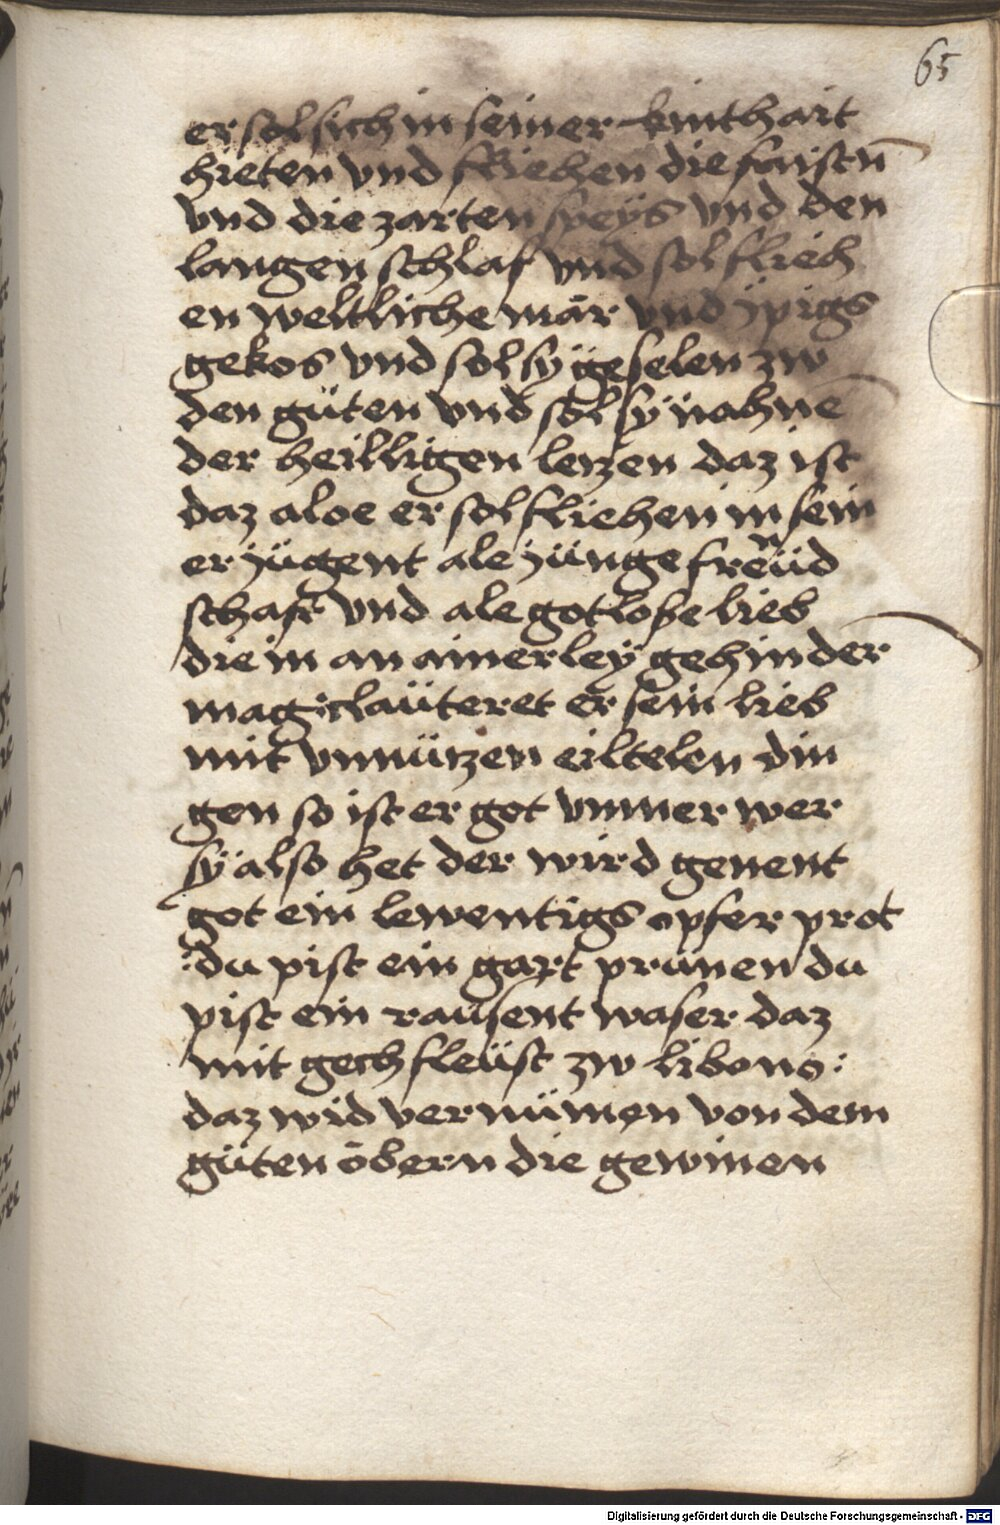 65
er sol sich in seiner kinthait
hieten vnd fliehen die faistn̄
vnd die zarten speÿs vnd den
langen schlaf vnd sol flieh
en weltliche mār vnd ÿpigs
gekos vnd sol sÿ geselen zw
den güten vnd sol sÿ nahnē
der heilligen lerzen daz ist
daz aloe er sol fliehen in sein
er jügent ale jünge freünd
schaft vnd ale gotlose lieb
die in an ainerleÿ gehinder
mag: claüteret er sein lieb
mit vnnützen eiltelen din
gen so ist er got vnmer wer
sÿ also het der wird genent
got ein lewentigs opfer prot
:du pist ein gart prünen du
pist ein rausent waser daz
mit gech fleüst zw libono:
daz wid vernümen von dem
güten öbern die gewinen
Digitalisierung gefördert durch die Deutsche Forschungsgemeinschaft - DFG